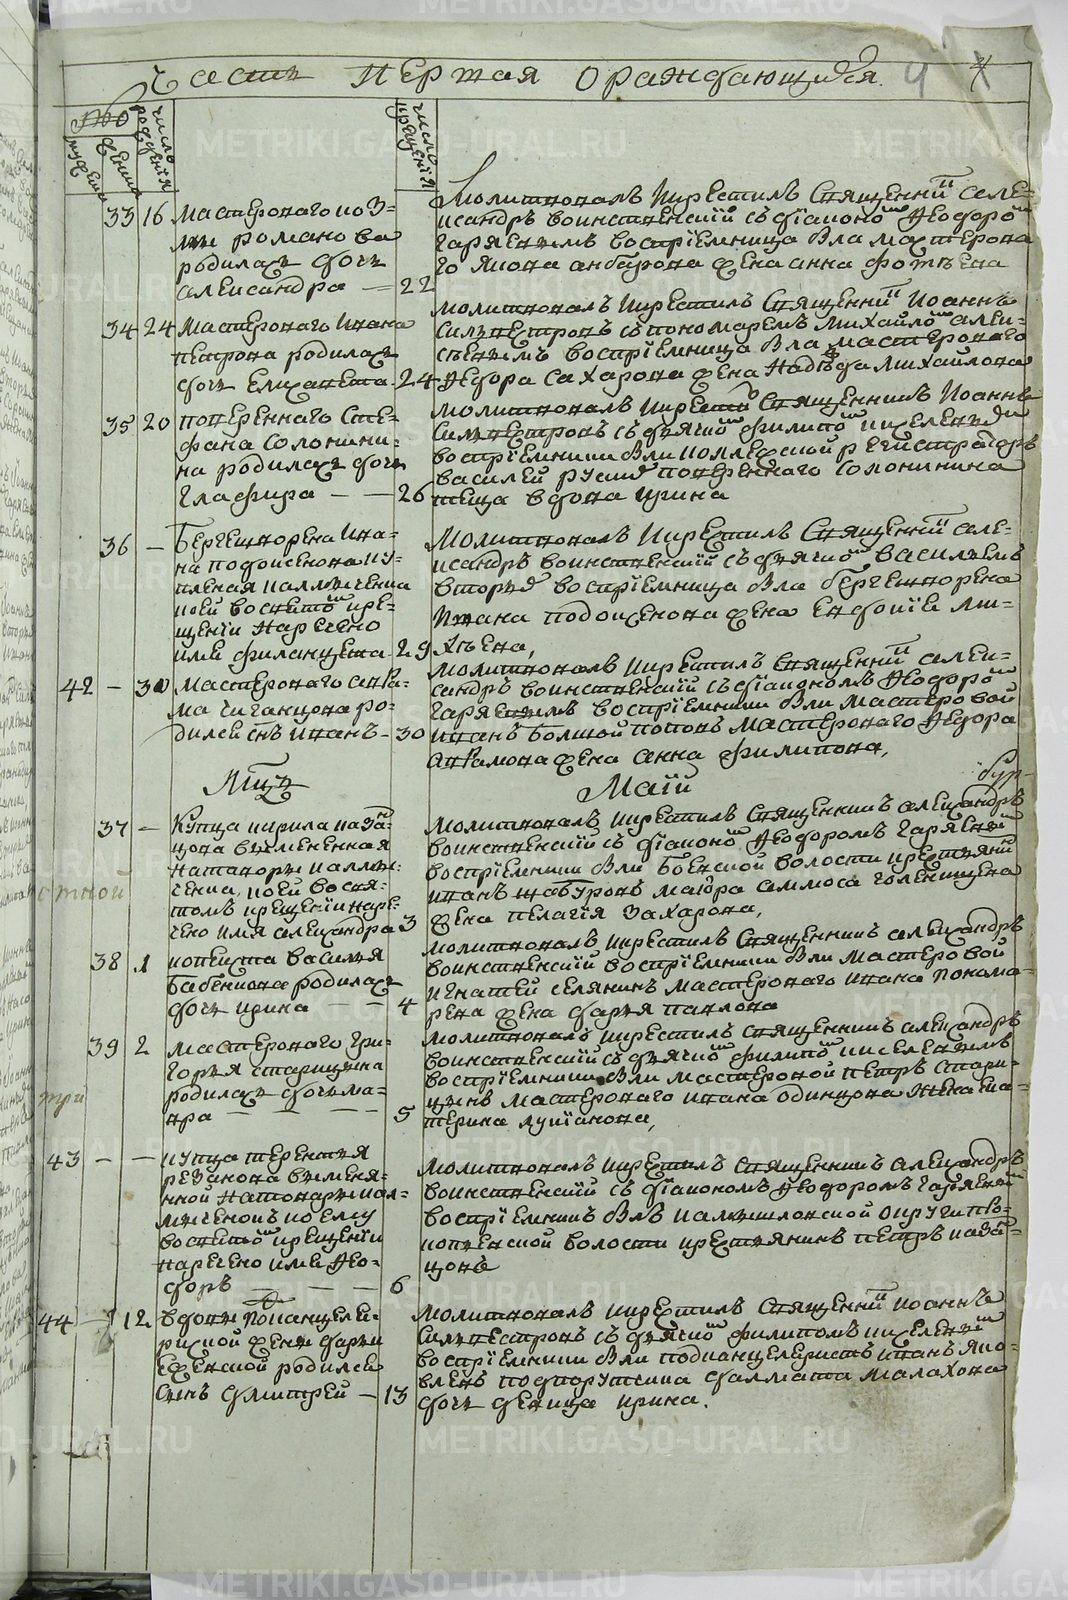 METRIKI.GASO-URAL.RU
Часть Первая ораждающихся
4
число рождения
мужеска
женска
число крещения
33 16 мастероваго коз-
мы романова
родилась дочь
александра — 22
Молитвовалъ и крестилъ Священник алек-
сандръ воинственский съ диаконом Феодором
гаряевымъ восприемница была мастерова-
го якова анбарова жена анна фотеева
34 24 Мастероваго ивана
петрова родилась
дочь елисавета 24
молитвовалъ и крестилъ Священник Иоаннъ
Сильвестровъ съ пономаремъ михайлом алек-
сеевымъ восприемница была мастероваго
Федора Сахарова жена надежда михайлова
35 20 поверенного Сте-
фана Солонини-
на родилась дочь
глафира — — 26
молитвовалъ и крестил Священникъ Иоаннъ
Сильвестровъ съ дьячком филипом
восприемники были коллежской регистраторъ
василей поверенного солонинина
теща вдова ирина
36 — Бергешворена ива-
на подоксенова ку-
пленая калмычения
коей восвятом кре-
щении наречено
имя филицата 29
Молитвовалъ и крестилъ Священник алек-
сандръ воинственский съ дьячком василиемъ
вторых восприемница была бергешворена
ивана подоксенова жена евдокия ми-
хеева,
42 — 30 мастероваго абра-
ма чиганцова ро-
дился снъ иванъ — 30
молитвовалъ и крестилъ Священник алек-
сандръ воинственский съ диакономъ Феодором
гаряевымъ восприемники были мастеровой
иванъ большой поповъ мастероваго Федора
абрамова жена анна филипова,
Мцъ Маий
37 — Купца кирила каза-
цова вымененная
натовары калмы-
чения, коей восвя-
томъ крещении наре-
чено имя александра 3
молитвовалъ и крестилъ Священникъ александръ
воинственский съ диаконом Феодоромъ гаряевым
восприемники были Боевской волости крестьянин
иванъ маиора голенищева
жена пелагия захарова,
38 1 кописта василья
бабенкова родилась
дочь ирина — — 4
молитвовалъ и крестилъ Священникъ александръ
воинственский восприемники были мастеровой
игнатей селянинъ мастероваго ивана понома-
рева жена дарья павлова
39 2 мастероваго гри-
горья старицына
родилась дочь ма-
вра — — — 5
молитвовалъ и крестилъ Священникъ александръ
воинственский съ дьячком филипом киселевымъ
восприемники были мастеровой петръ стари-
цынъ мастероваго ивана одинцова жена ка-
терина лукианова,
43 — — купца терентья
резанова вымене-
нной натовары кал-
мыченокъ коему
восвятом крещении
наречено имя Фео-
доръ — — — 6
молитвовалъ и крестилъ Священникъ александръ
воинственский съ диакономъ Феодоромъ гаряевым
восприемникъ былъ камышловской округи про-
копьевской волости крестьянинъ петръ каза-
цовъ
44 — 12 вдовы поканцеля-
риской жены дарьи
родился
сынъ димитрей — 13
молитвовалъ и крестилъ Священник иоаннъ
Сильвестровъ съ дьячком филипомъ киселевым
восприемники были подканцеляристъ иванъ яко-
влевъ подпорутчика далмата малахова
дочь девица ирина.